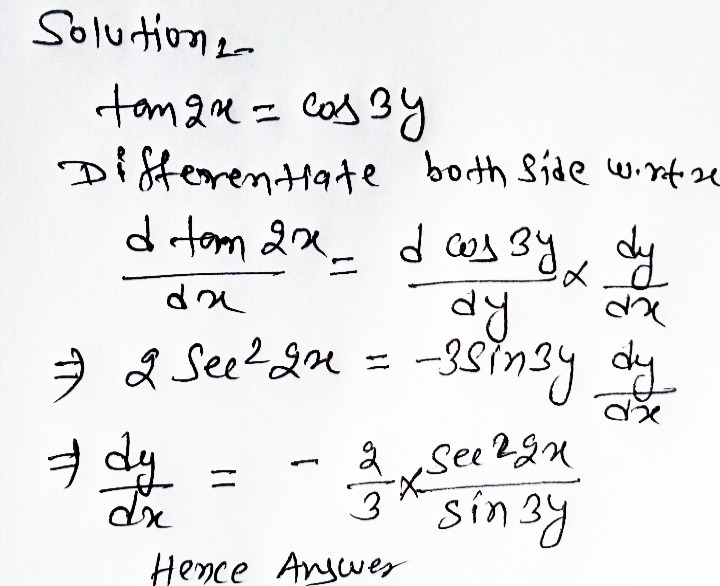 Solution:-
tan2x = cos3y
Differentiate both side w.r.t x
d tan 2x / dx = d cos 3y / dy × dy / dx
⇒ 2 Sec² 2x = -3Sin3y dy / dx
⇒ dy / dx = - 2 / 3 × Sec²2x / sin 3y
Hence Answer